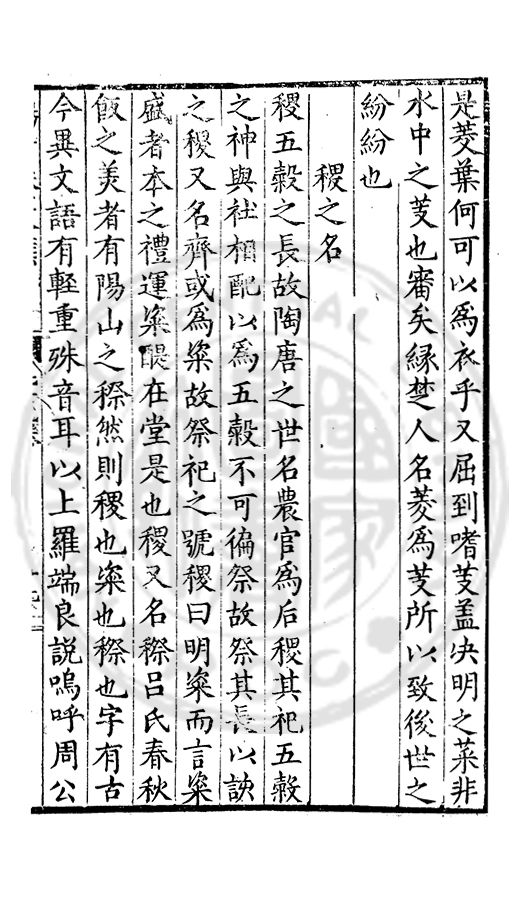 是菱葉何可以爲衣乎又屈到嗜芰盖决明之菜非
水中之芰也審矣緣楚人名菱爲芰所以致後世之
紛紛也
稷之名
稷五榖之長故陶唐之世名農官爲后稷其祀五榖
之神與社相配以爲五榖不可徧祭故祭其長以該
之稷又名齊或爲粢故祭祀之號稷曰明粢而言粢
盛者本之禮運粢醍在堂是也稷又名穄吕氏春秋
飯之美者有陽山之穄然則稷也粢也穄也字有古
今異文語有輕重殊音耳以上羅端良説嗚呼周公